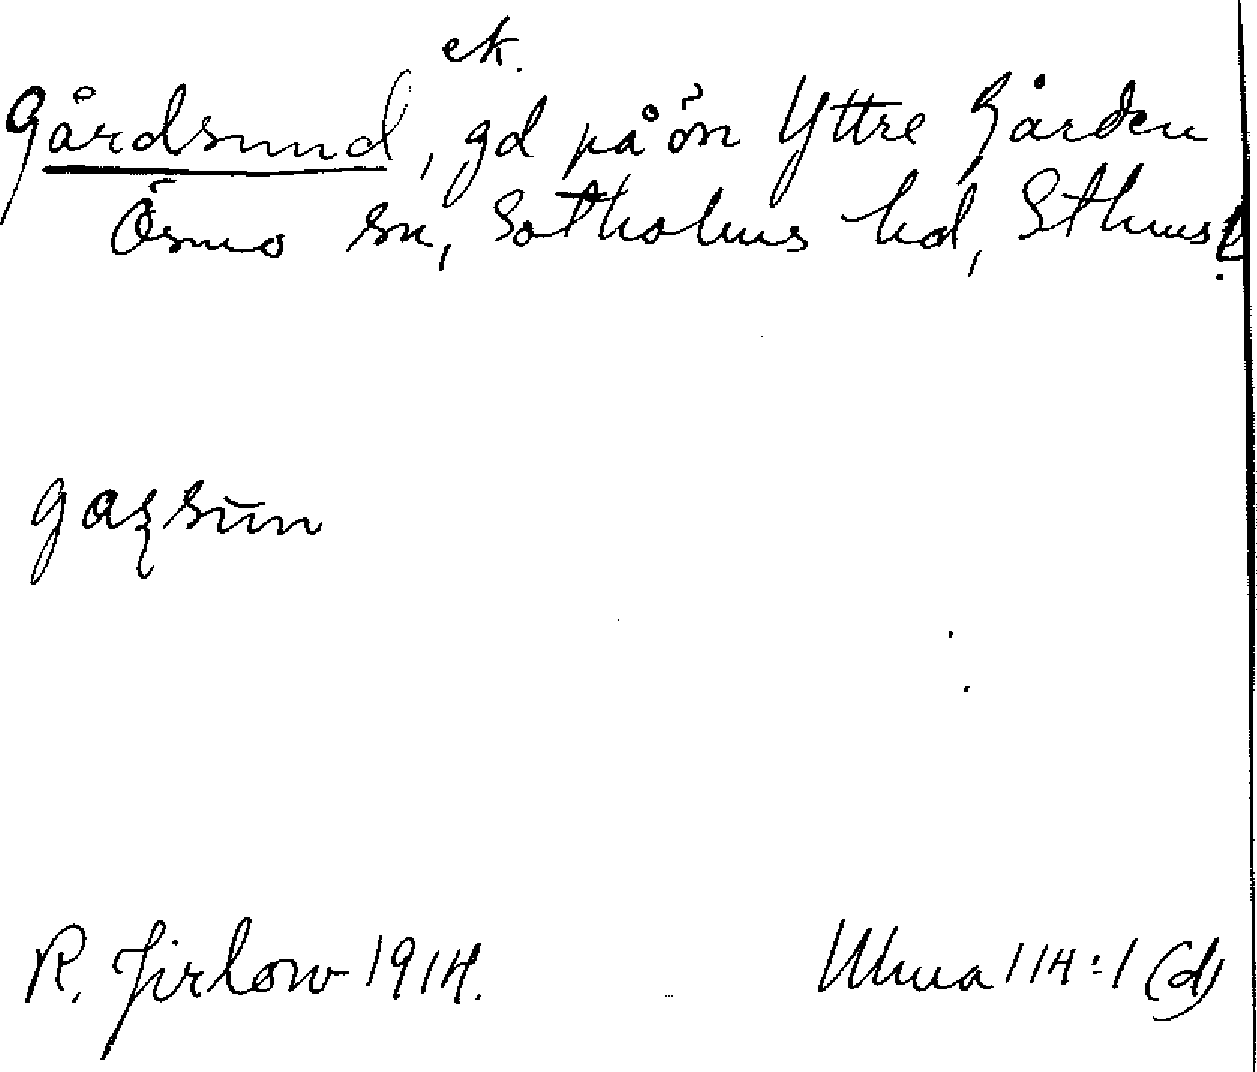 ek.
Gårdsund, gd på ön Yttre Gården
Ösmo sn, Sotholms hd, Sthms l.
R. Jirlow 1914.
114:1 (d)